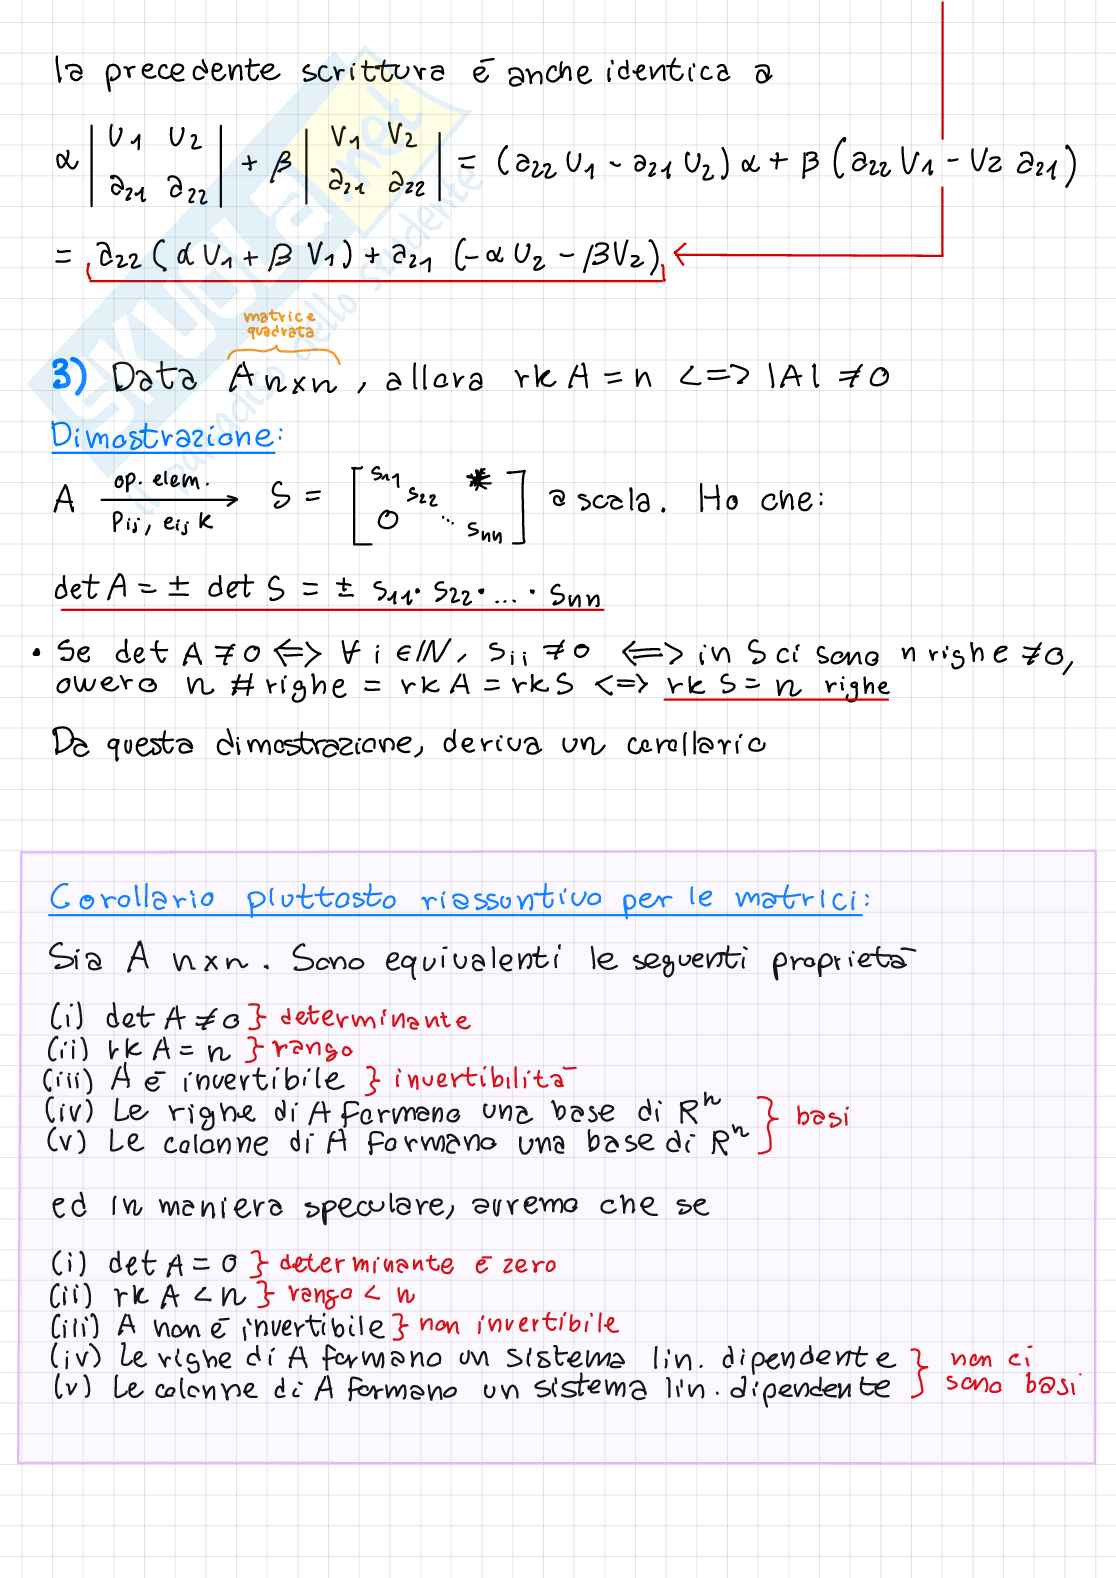 la precedente scrittura é anche identica a
α | U1 U2 / a21 a22 | + β | V1 V2 / a21 a22 | = (a22 U1 - a21 U2) α + β (a22 V1 - V2 a21)
= a22 (α U1 + β V1) + a21 (-α U2 - βV2)
matrice
quadrata
3) Data A nxn, allora rk A = n <=> |A| ≠ 0
Dimostrazione:
A op. elem. Pij, eij k → S = [ s11 s22 * 0 ... snn ] a scala. Ho che:
det A = ± det S = ± s11 · s22 · ... · snn
• Se det A ≠ 0 <=> ∀ i ∈ IN, sii ≠ 0 <=> in S ci sono n righe ≠ 0,
ovvero n # righe = rk A = rk S <=> rk S = n righe
Da questa dimostrazione, deriva un corollario
Corollario piuttosto riassuntivo per le matrici:
Sia A nxn. Sono equivalenti le seguenti proprietā
(i) det A ≠ 0 } determinante
(ii) rk A = n } rango
(iii) A ē invertibile } invertibilitā
(iv) Le righe di A formano una base di Rⁿ
(v) Le colonne di A formano una base di Rⁿ } basi
ed in maniera speculare, avremo che se
(i) det A = 0 } determinante ē zero
(ii) rk A < n } rango < n
(iii) A non ē invertibile } non invertibile
(iv) Le righe di A formano un sistema lin. dipendente } non ci
(v) Le colonne di A formano un sistema lin. dipendente } sono basi
SKUOLA.net